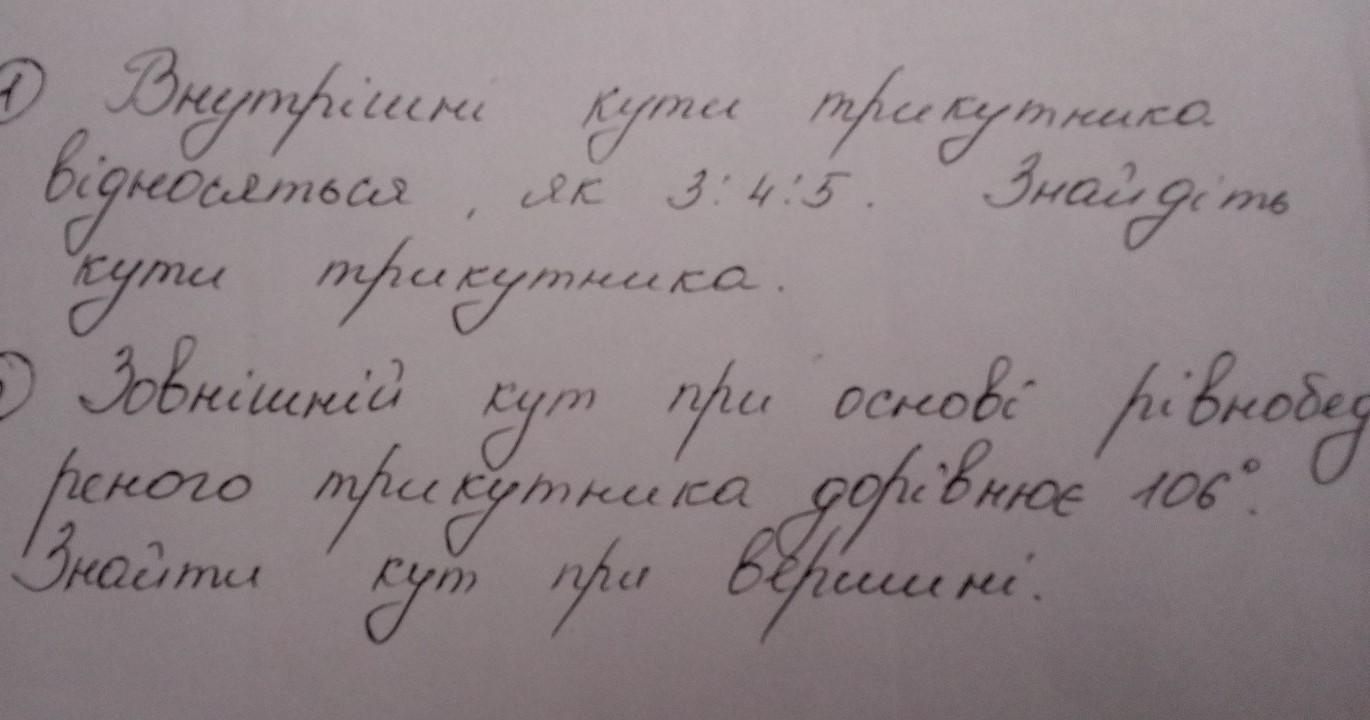 ① Внутрішні кути трикутника
відносяться, як 3:4:5. Знайдіть
кути трикутника.
Зовнішній кут при основі рівнобед
реного трикутника дорівнює 106°.
Знайти кут при вершині.